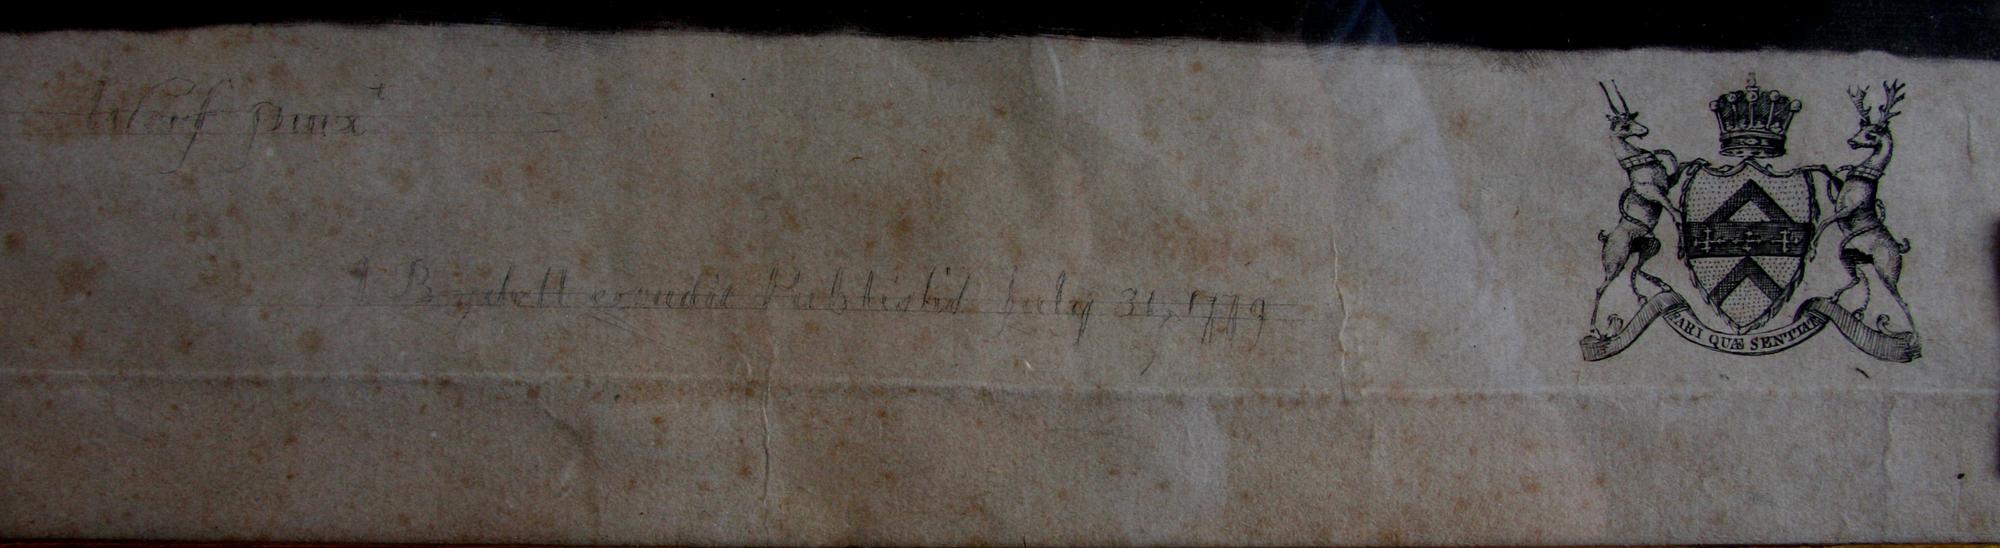 Werff pinxt
J Boydell excudit Publish'd July 31, 1779
FARI QUÆ SENTIAT